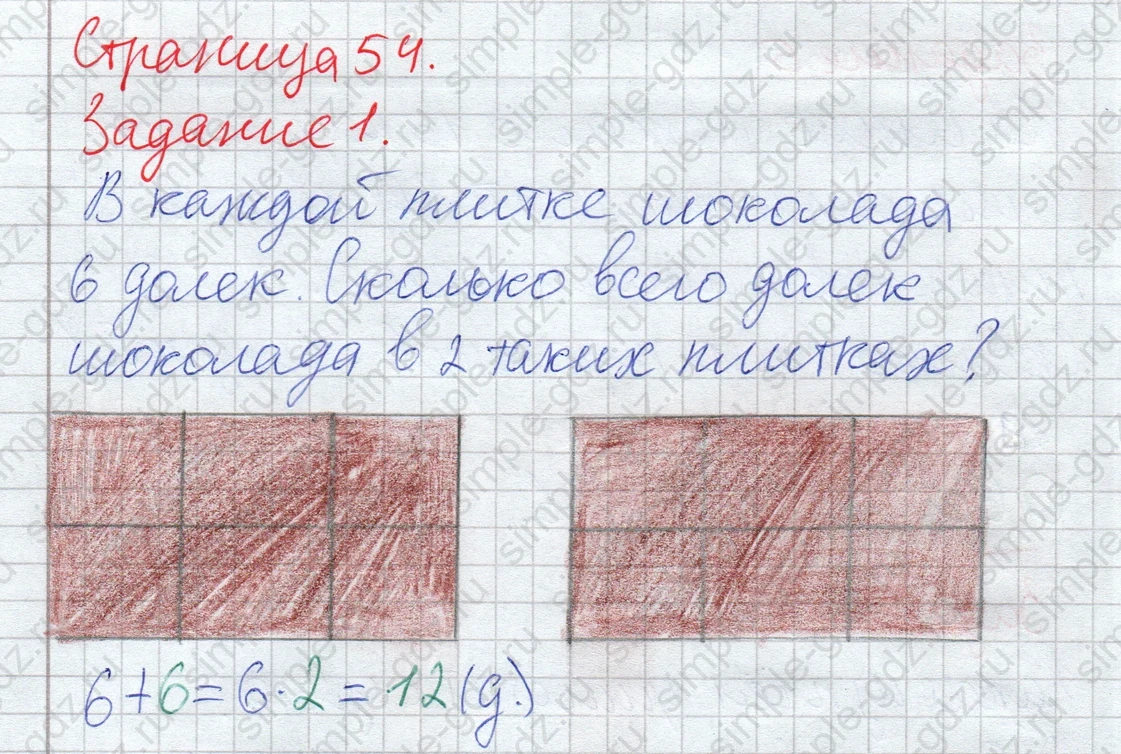 Страница 54.
Задание 1.
В каждой плитке шоколада
6 долек. Сколько всего долек
шоколада в 2 таких плитках?
6+6=6·2=12(д.)
simple-gdz.ru